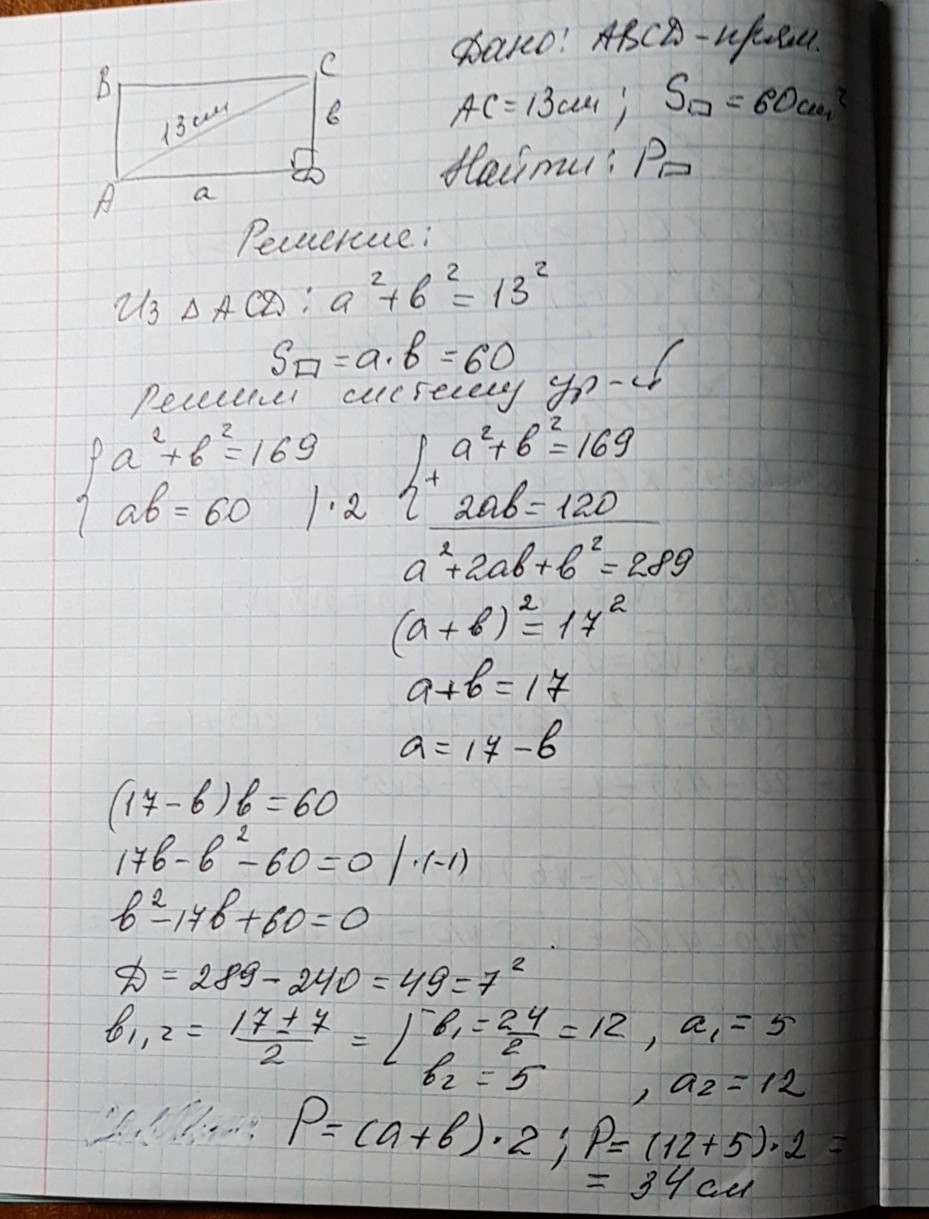 B
C
13см
в
A
a
D
Дано: ABCD - прям.
AC = 13см ; S▭ = 60см²
Найти: P▭
Решение:
Из △ ACD: a² + в² = 13²
S▭ = a · в = 60
Решим систему ур-й
{ a² + в² = 169
ab = 60 | · 2
{ a² + в² = 169
+ 2ab = 120
a² + 2ab + в² = 289
(a + в)² = 17²
a + в = 17
a = 17 - в
(17 - в) в = 60
17в - в² - 60 = 0 | · (-1)
в² - 17в + 60 = 0
D = 289 - 240 = 49 = 7²
в₁,₂ = (17 ± 7)/2 = [ в₁ = 24/2 = 12 , a₁ = 5
в₂ = 5 , a₂ = 12
P = (a + в) · 2 ; P = (12 + 5) · 2 =
= 34 см